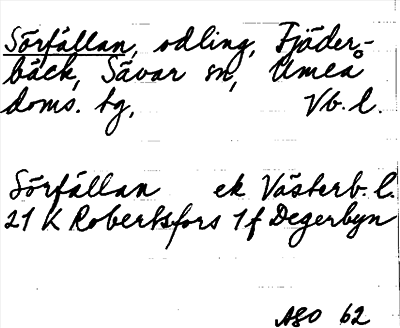 Sörfällan, odling, Fjäder-
bäck, Sävar sn, Umeå
doms. tg, Vb. l.
Sörfällan ek Västerb. l.
21 K Robertsfors 1 f Degerbyn
ÅSO 62